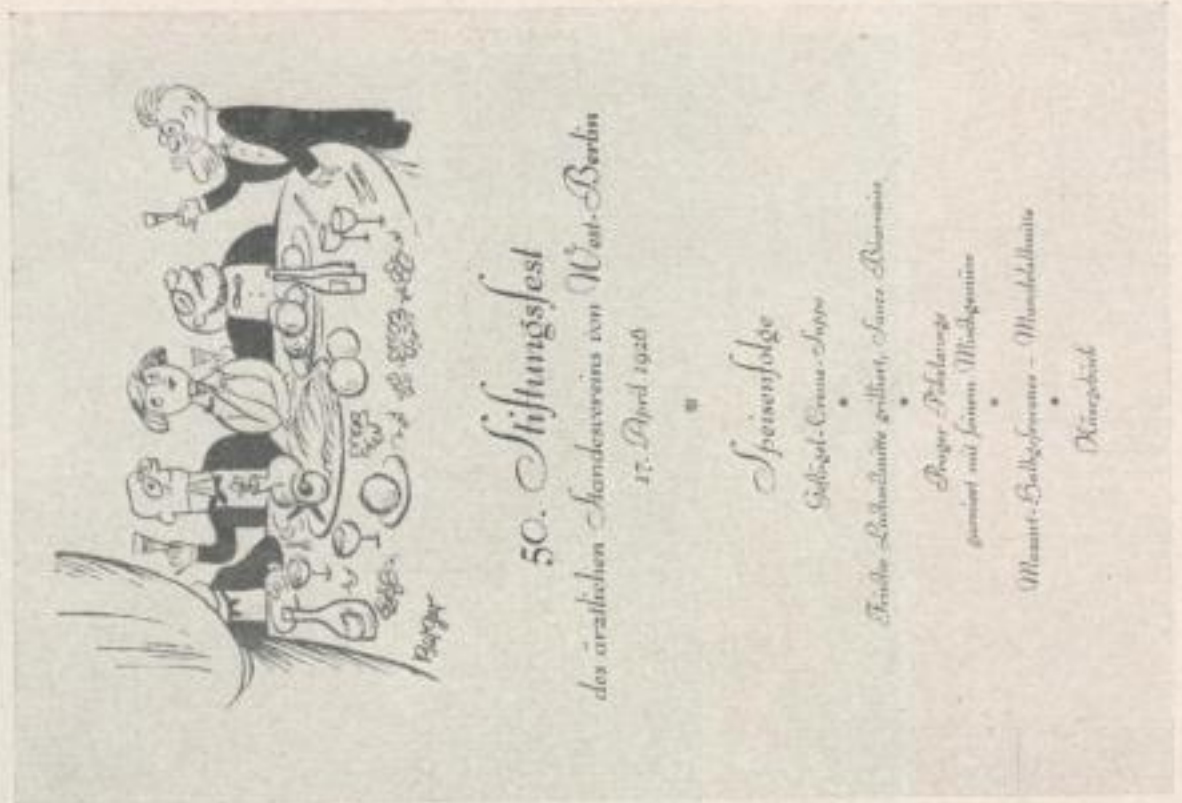 Burger
50. Stiftungsfest
des ärztlichen Standesvereins von West-Berlin
17. April 1926
Speisenfolge
Geflügel-Creme-Suppe
Frische Lachsschnitte grilliert, Sauce Béarnaise
Prager Pökelzunge
garniert mit feinem Mischgemüse
Mandelschnitte
Käsegebäck